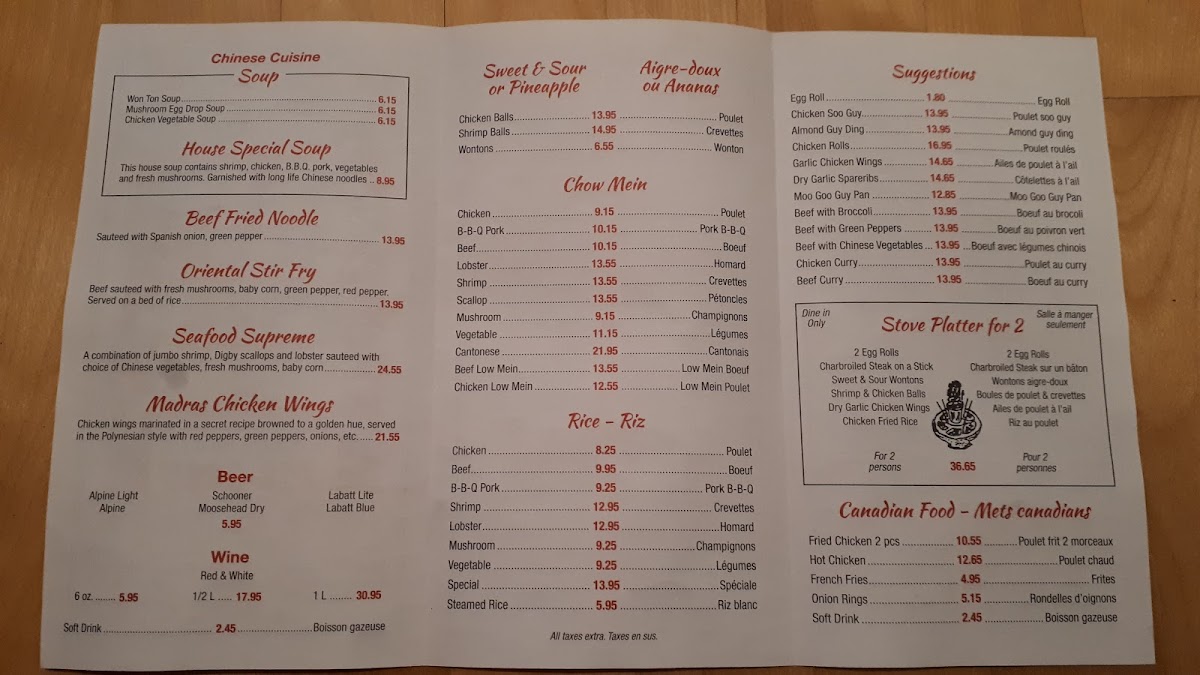 Chinese Cuisine
Soup
Won Ton Soup 6.15
Mushroom Egg Drop Soup 6.15
Chicken Vegetable Soup 6.15
House Special Soup
This house soup contains shrimp, chicken, B.B.Q. pork, vegetables
and fresh mushrooms. Garnished with long life Chinese noodles .. 8.95
Beef Fried Noodle
Sauteed with Spanish onion, green pepper 13.95
Oriental Stir Fry
Beef sauteed with fresh mushrooms, baby corn, green pepper, red pepper.
Served on a bed of rice 13.95
Seafood Supreme
A combination of jumbo shrimp, Digby scallops and lobster sauteed with
choice of Chinese vegetables, fresh mushrooms, baby corn 24.55
Madras Chicken Wings
Chicken wings marinated in a secret recipe browned to a golden hue, served
in the Polynesian style with red peppers, green peppers, onions, etc. 21.55
Beer
Alpine Light Schooner Labatt Lite
Alpine Moosehead Dry Labatt Blue
5.95
Wine
Red & White
6 oz. 5.95 1/2 L 17.95 1 L 30.95
Soft Drink 2.45 Boisson gazeuse
Sweet & Sour Aigre-doux
or Pineapple ou Ananas
Chicken Balls 13.95 Poulet
Shrimp Balls 14.95 Crevettes
Wontons 6.55 Wonton
Chow Mein
Chicken 9.15 Poulet
B-B-Q Pork 10.15 Pork B-B-Q
Beef 10.15 Boeuf
Lobster 13.55 Homard
Shrimp 13.55 Crevettes
Scallop 13.55 Pétoncles
Mushroom 9.15 Champignons
Vegetable 11.15 Légumes
Cantonese 21.95 Cantonais
Beef Low Mein 13.55 Low Mein Boeuf
Chicken Low Mein 12.55 Low Mein Poulet
Rice - Riz
Chicken 8.25 Poulet
Beef 9.95 Boeuf
B-B-Q Pork 9.25 Pork B-B-Q
Shrimp 12.95 Crevettes
Lobster 12.95 Homard
Mushroom 9.25 Champignons
Vegetable 9.25 Légumes
Special 13.95 Spéciale
Steamed Rice 5.95 Riz blanc
All taxes extra. Taxes en sus.
Suggestions
Egg Roll 1.80 Egg Roll
Chicken Soo Guy 13.95 Poulet soo guy
Almond Guy Ding 13.95 Amond guy ding
Chicken Rolls 16.95 Poulet roulés
Garlic Chicken Wings 14.65 Ailes de poulet à l'ail
Dry Garlic Spareribs 14.65 Côtelettes à l'ail
Moo Goo Guy Pan 12.85 Moo Goo Guy Pan
Beef with Broccoli 13.95 Boeuf au brocoli
Beef with Green Peppers 13.95 Boeuf au poivron vert
Beef with Chinese Vegetables 13.95 Boeuf avec légumes chinois
Chicken Curry 13.95 Poulet au curry
Beef Curry 13.95 Boeuf au curry
Dine in Salle à manger
Only seulement
Stove Platter for 2
2 Egg Rolls 2 Egg Rolls
Charbroiled Steak on a Stick Charbroiled Steak sur un bâton
Sweet & Sour Wontons Wontons aigre-doux
Shrimp & Chicken Balls Boules de poulet & crevettes
Dry Garlic Chicken Wings Ailes de poulet à l'ail
Chicken Fried Rice Riz au poulet
For 2 Pour 2
persons 36.65 personnes
Canadian Food - Mets canadians
Fried Chicken 2 pcs 10.55 Poulet frit 2 morceaux
Hot Chicken 12.65 Poulet chaud
French Fries 4.95 Frites
Onion Rings 5.15 Rondelles d'oignons
Soft Drink 2.45 Boisson gazeuse